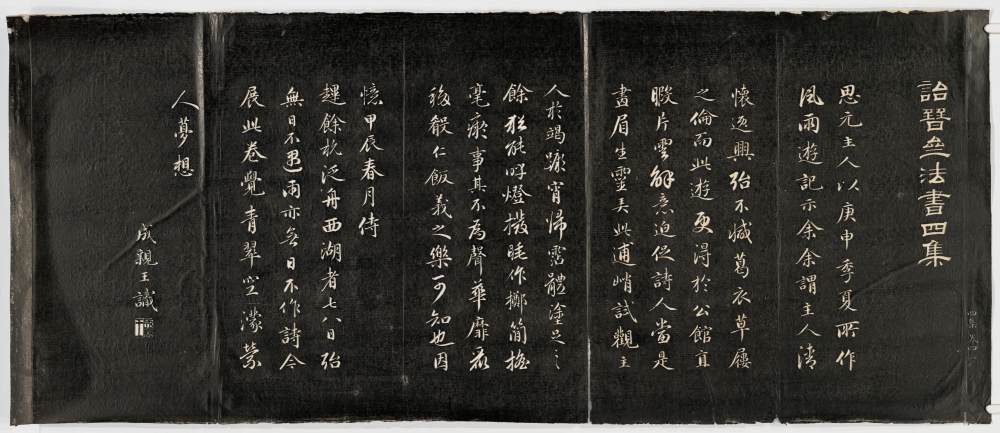 詒晉齋法書四集
思元主人以庚申季夏所作
風雨遊記示余余謂主人清
懷逸興殆不減葛衣草屨
之倫而此遊更得於公館直
暇片雲解意迫促詩人當是
畫眉生靈弄此逋峭試觀主
人於竭蹶宵歸霑體塗足之
餘猶能呼燈撥眊作擲簡搖
毫事其不為聲華靡
後殽仁飯義之樂可知也因
憶甲辰春月侍
蹕餘杭泛舟西湖者七八日殆
無日不遇雨亦無日不作詩今
展此卷覺青翠空濛縈
人夢想
成親王識